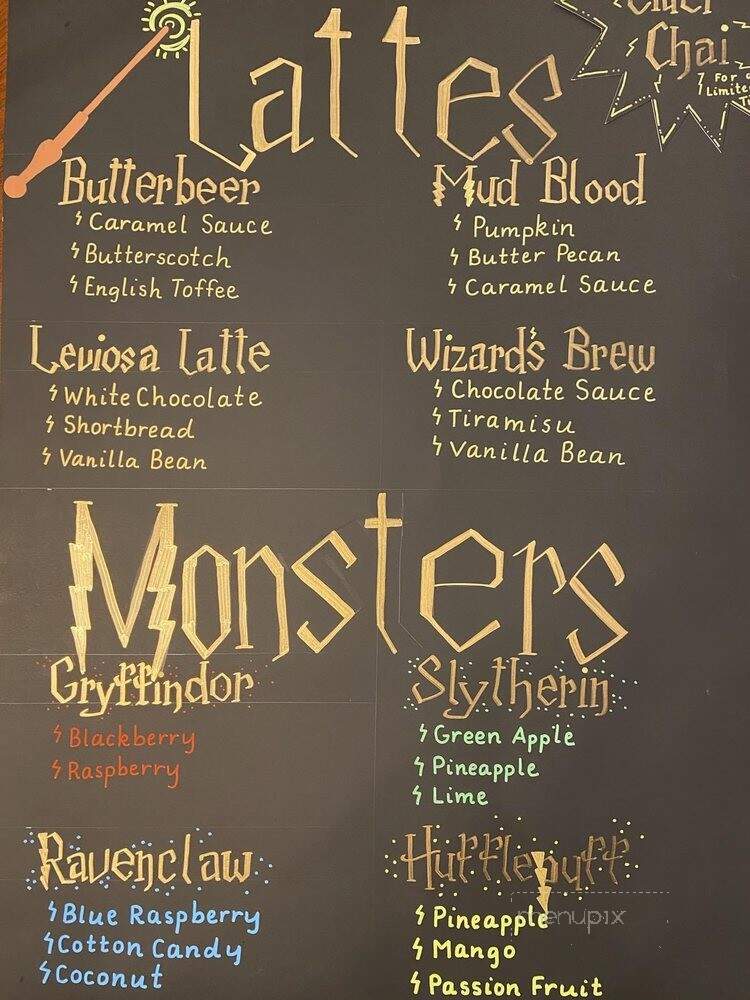 Lattes
Chai
For a
Butterbeer
Caramel Sauce
Butterscotch
English Toffee
Mud Blood
Pumpkin
Butter Pecan
Caramel Sauce
Leviosa Latte
White Chocolate
Shortbread
Vanilla Bean
Wizard's Brew
Chocolate Sauce
Tiramisu
Vanilla Bean
Monsters
Gryffindor
Blackberry
Raspberry
Slytherin
Green Apple
Pineapple
Lime
Ravenclaw
Blue Raspberry
Cotton Candy
Coconut
Hufflepuff
Pineapple
menupix
Mango
Passion Fruit